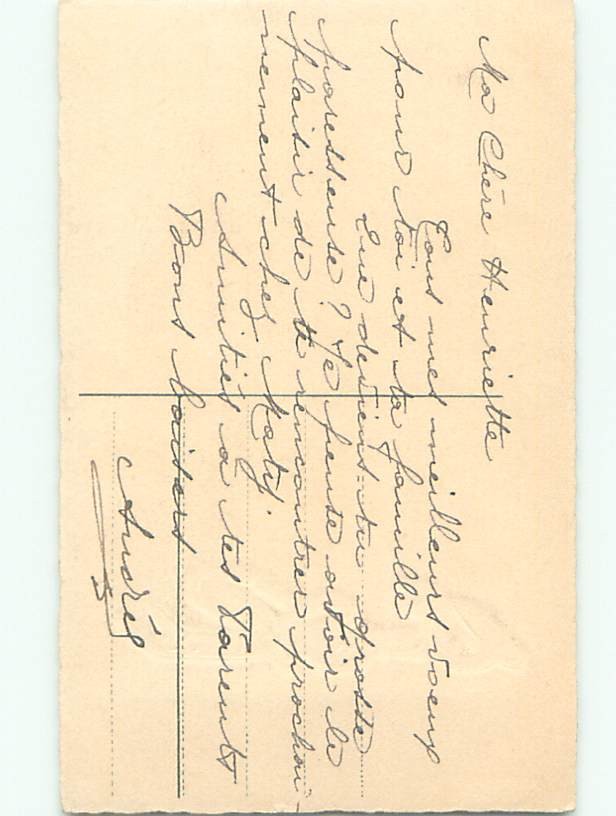 Ma Chère Henriette
Tous mes meilleurs voeux
pour toi et ta famille
Que deviens-tu grosse
paresseuse ? Je pense avoir le
plaisir de te rencontrer prochai-
nement chez Maty.
Amitiés à tes Parents
Bons baisers
Andrée